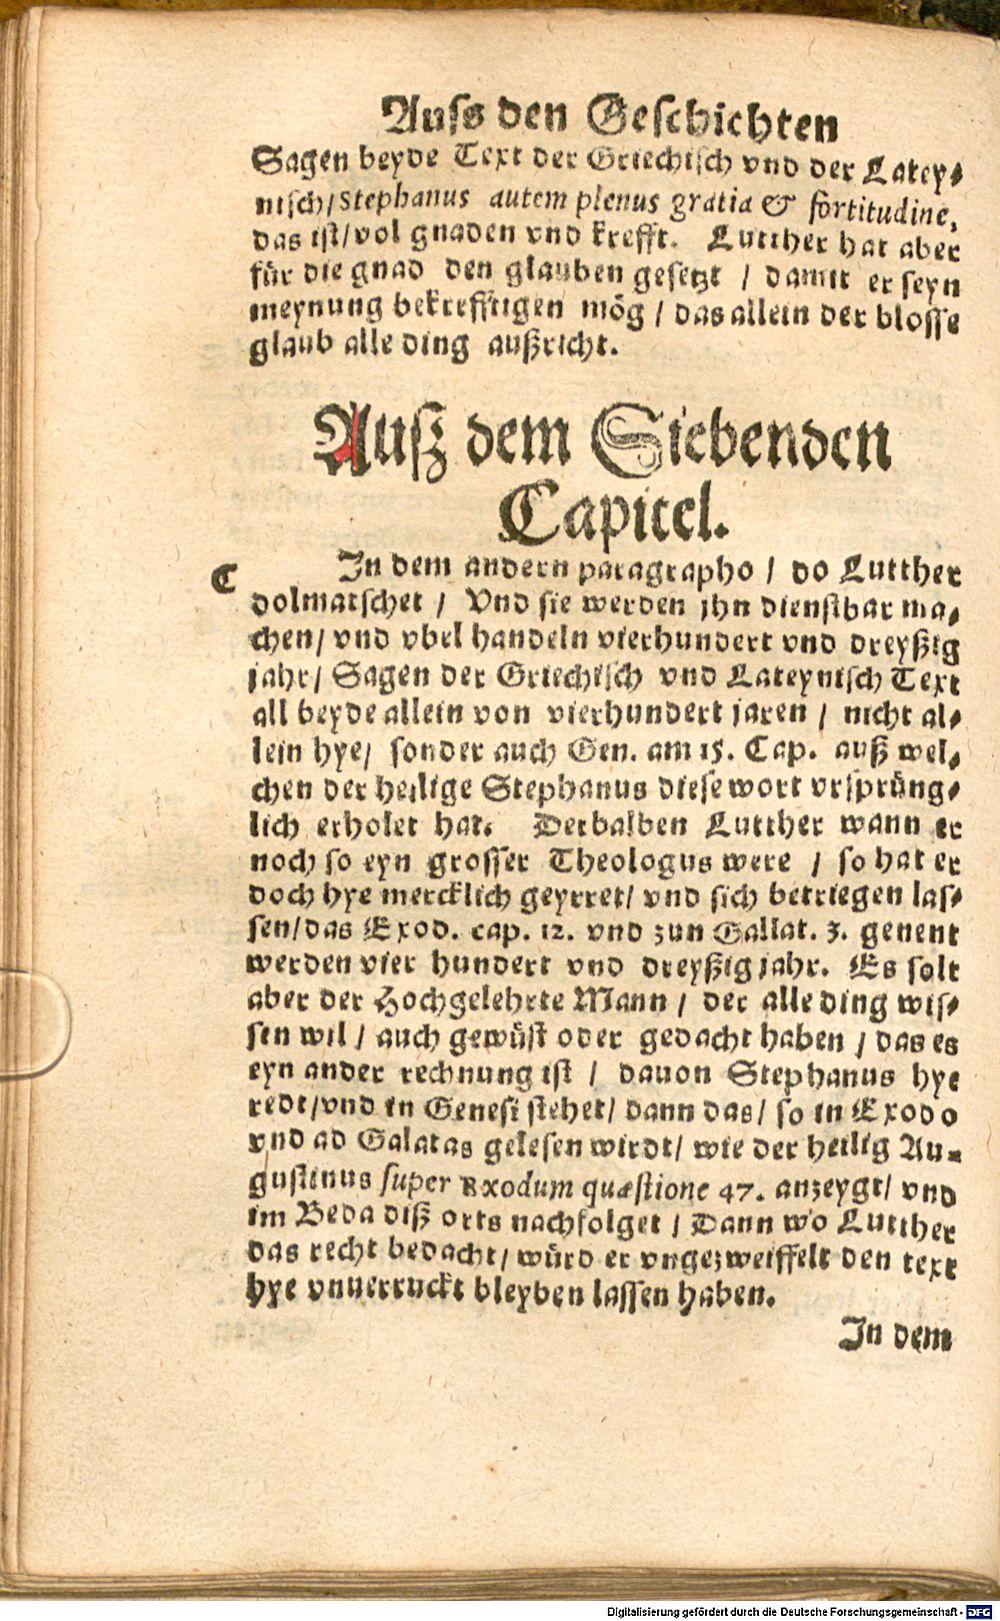 Auſs den Geſchichten
Sagen beyde Text der Griechiſch vnd der Lateyniſch/
niſch/ Stephanus autem plenus gratia & fortitudine,
das iſt/ vol gnaden vnd krefft. Lutther hat aber
für die gnad den glauben geſetzt / damit er ſeyn
meynung bekrefftigen mög / das allein der bloſſe
glaub alle ding außricht.
Auſz dem Siebenden
Capitel.
C In dem andern paragrapho / do Lutther
dolmatſchet / Vnd ſie werden jhn dienſtbar ma⸗
chen/ vnd vbel handeln vierhundert vnd dreyßig
jahr/ Sagen der Griechiſch vnd Lateyniſch Text
all beyde allein von vierhundert jaren / nicht al⸗
lein hye/ ſonder auch Gen. am 15. Cap. auß wel⸗
chen der heilige Stephanus dieſe wort vrſprüng⸗
lich erholet hat. Derhalben Lutther wann er
noch ſo eyn groſſer Theologus were / ſo hat er
doch hye mercklich geyrret/ vnd ſich betriegen laſ⸗
ſen/ das Exod. cap. 12. vnd zun Gallat. 3. genent
werden vier hundert vnd dreyßig jahr. Es ſolt
aber der Hochgelehrte Mann / der alle ding wiſ⸗
ſen wil / auch gewüſt oder gedacht haben / das es
eyn ander rechnung iſt / dauon Stephanus hye
redt/ vnd in Geneſi ſtehet/ dann das/ ſo in Exodo
vnd ad Galatas geleſen wirdt/ wie der heilig Au⸗
guſtinus ſuper Exodum quæſtione 47. anzeygt/ vnd
im Beda diß orts nachfolget / Dann wo Lutther
das recht bedacht/ würd er vngezweiffelt den text
hye vnuerruckt bleyben laſſen haben.
In dem
Digitalisierung gefördert durch die Deutsche Forschungsgemeinschaft - DFG